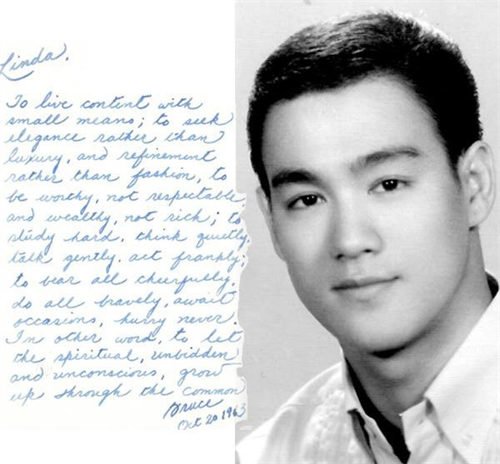 Linda,
To live content with
small means; to seek
elegance rather than
luxury, and refinement
rather than fashion, to
be worthy, not respectable,
and wealthy, not rich; to
study hard, think quietly,
talk gently, act frankly;
to bear all cheerfully,
do all bravely, await
occasions, hurry never.
In other word, to let
the spiritual, unbidden
and unconscious, grow
up through the common
Bruce
Oct 20 1963